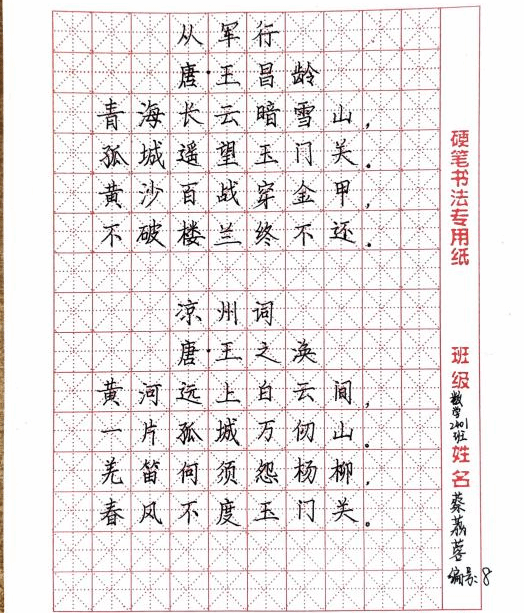 从军行
唐·王昌龄
青海长云暗雪山，
孤城遥望玉门关。
黄沙百战穿金甲，
不破楼兰终不还。
凉州词
唐·王之涣
黄河远上白云间，
一片孤城万仞山。
羌笛何须怨杨柳，
春风不度玉门关。
硬笔书法专用纸
班级 数学2401班
姓名 蔡荔蓉
编号:8